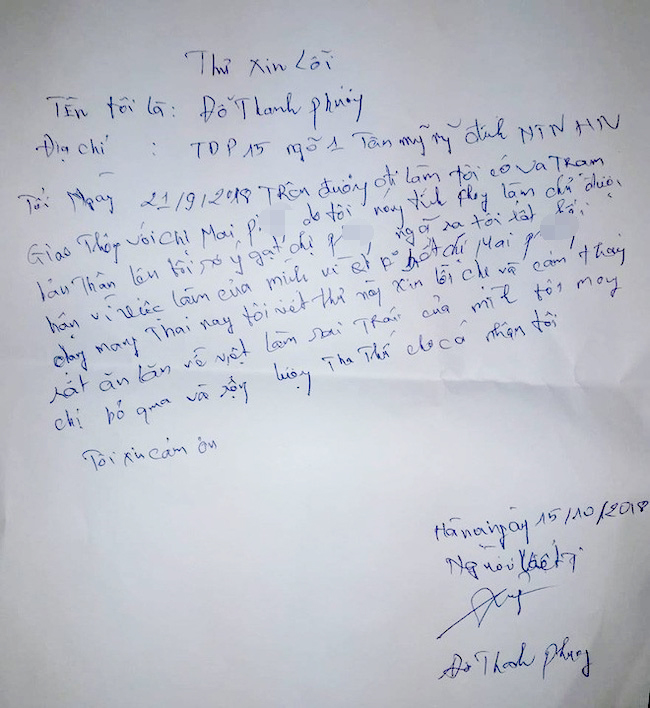 Thư xin Lỗi
Tên tôi là: Đỗ Thanh Phượng
Địa chỉ : TDP 15 ngõ 1 Tân mỹ mỹ đình NTN HN
Tối Ngày 21/9/2018 Trên đường đi làm tôi có va Trạm
Giao Thông với Chị Mai P. do tôi nóng tính không làm chủ được
bản Thân lên tôi sơ ý gạt chị P ngã ra tôi rất hối
hận vì việc làm của mình vì chị Mai P
đang mang Thai nay tôi viết thư này xin lỗi chị và cảm thấy
rất ăn lăn về việt làm sai Trái của mình tôi mong
chị bỏ qua và rộng lượng Tha Thứ cho cá nhân tôi
Tôi xin cảm ơn
Hà nội ngày 15/10/2018
Người viết
Đỗ Thanh Phượng